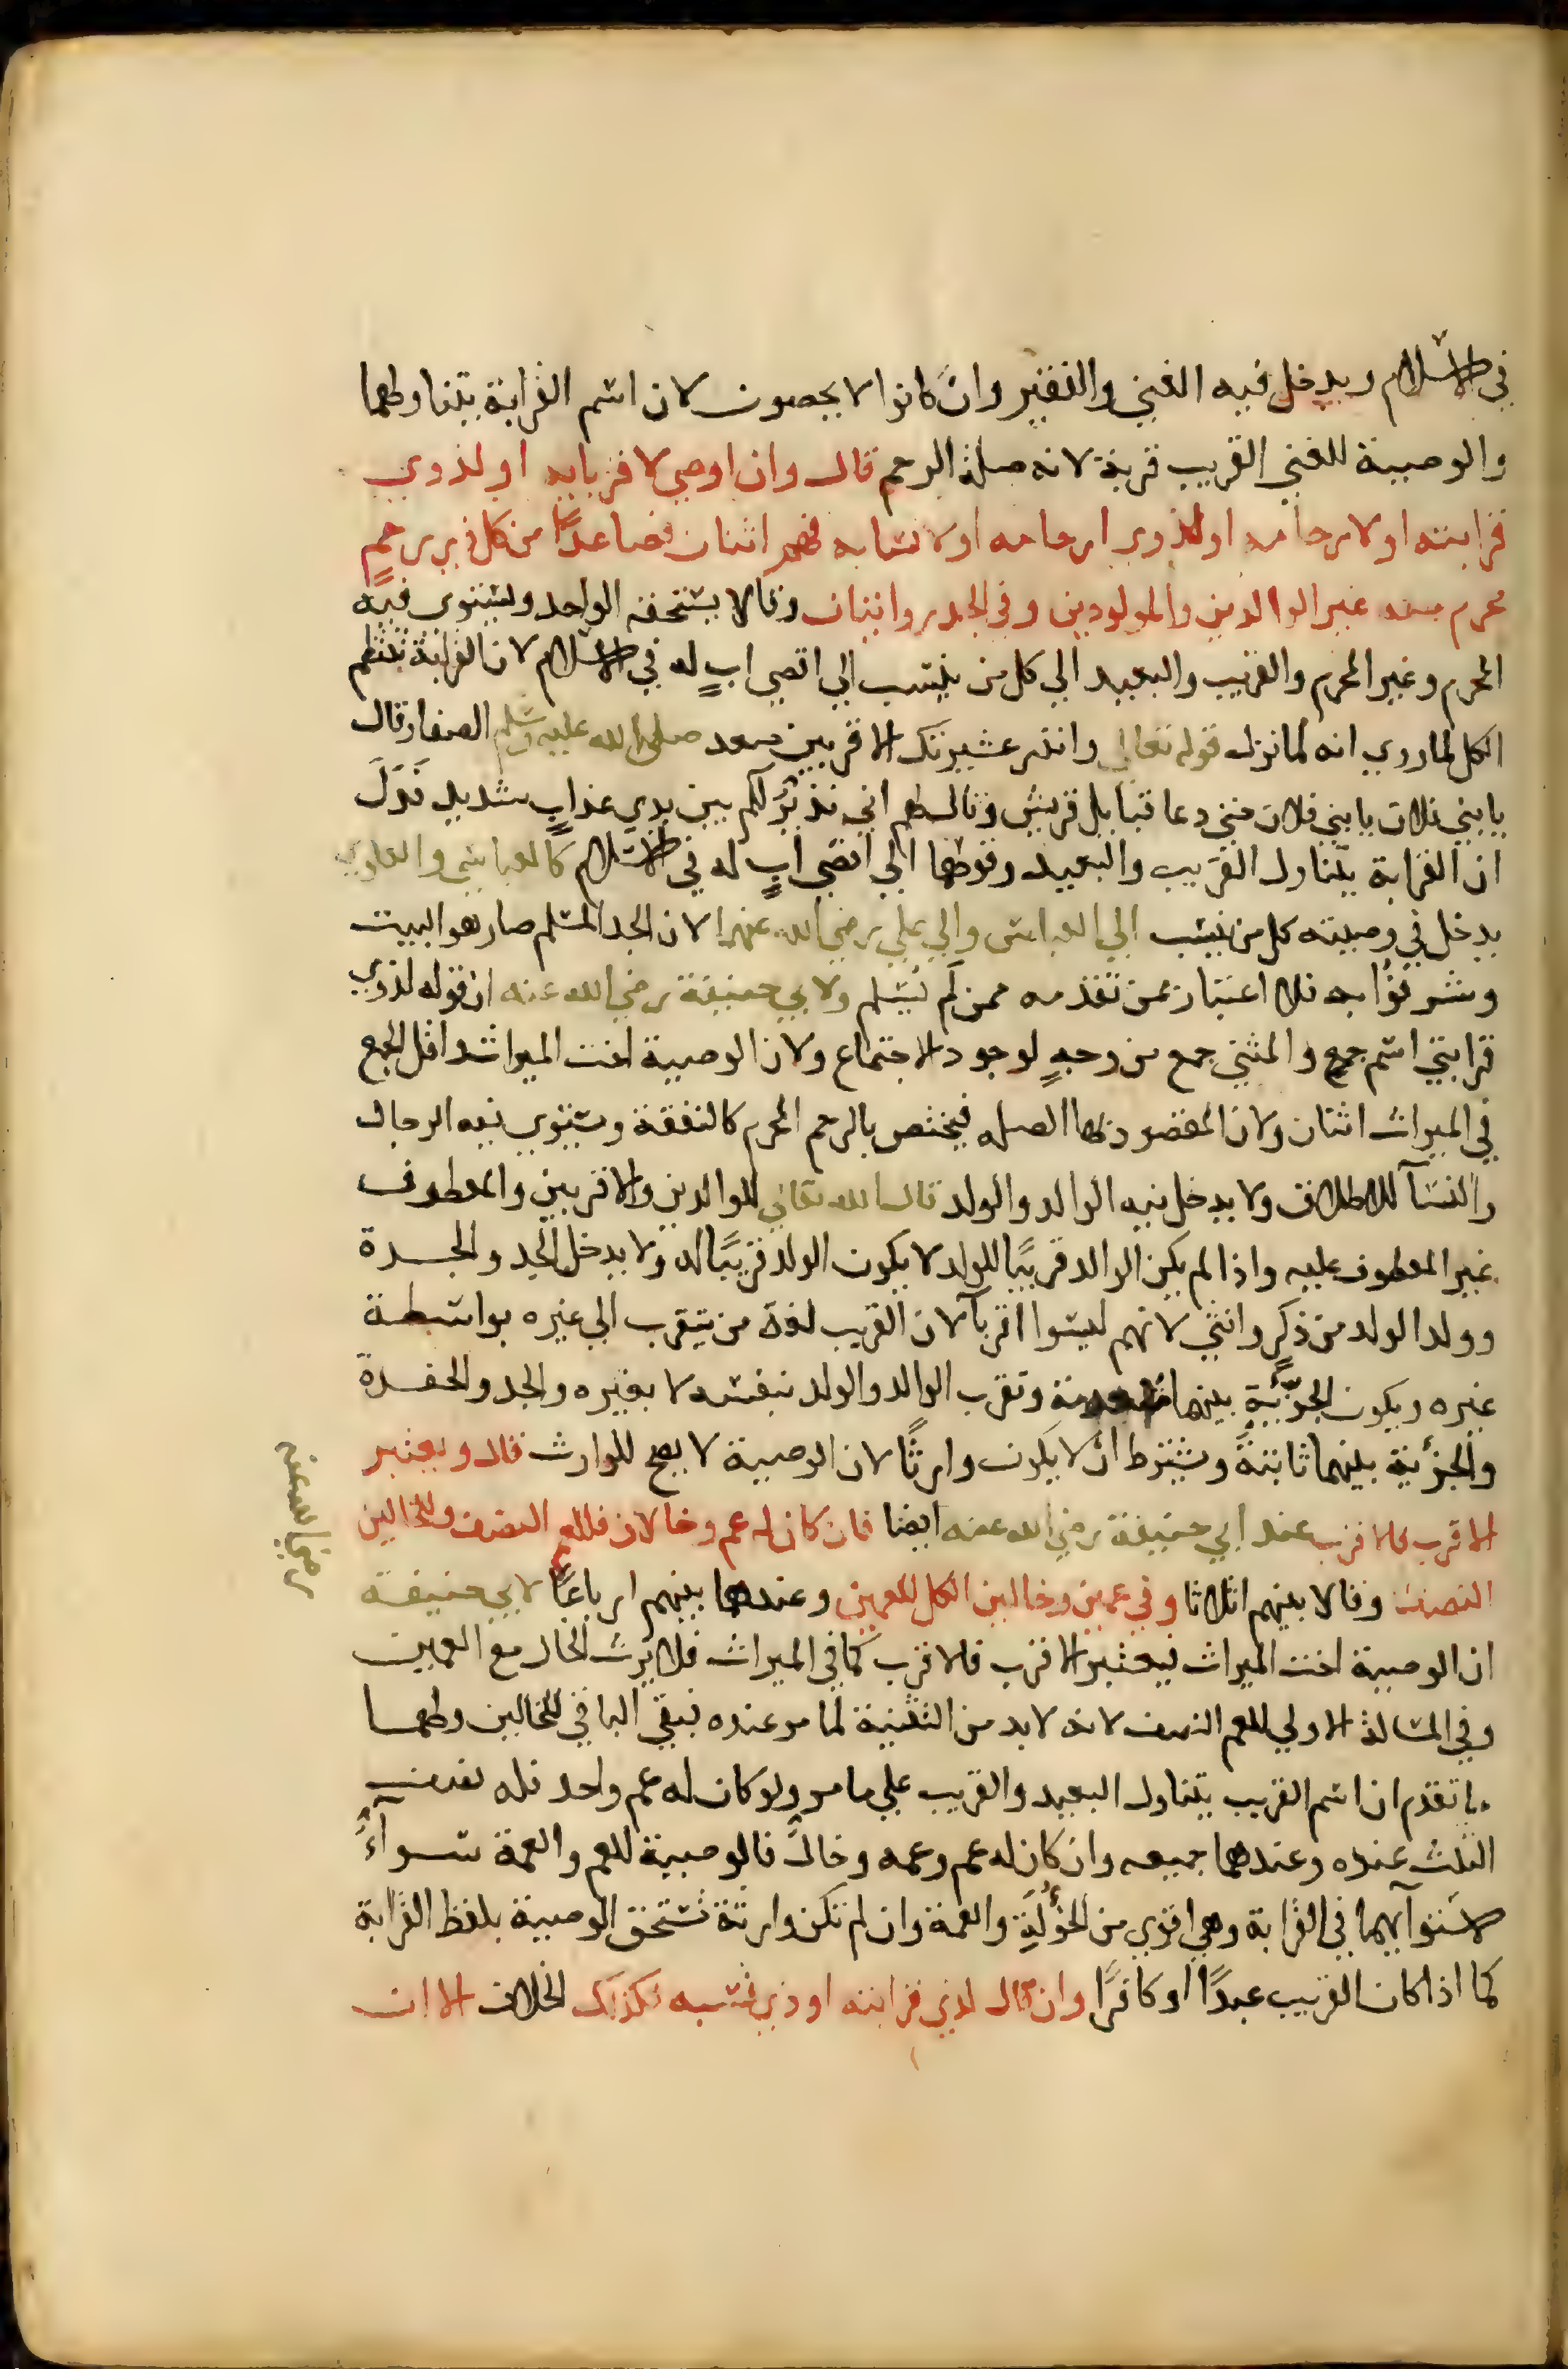 في الاسلام ويدخل فيه الغني والفقير وان كانوا لا يحصون لان اسم القرابة يتناولهما
والوصية للغني القريب قربة لانه صلة الرحم قال وان اوصى لاقربايه او لذوي
قرابته او لارحامه او لذوي ارحامه او لانسابه فهم اثنان فصاعدًا من كل ذي رحمٍ
محرم منه غير الوالدين والمولودين وفي الجد روايتان وقالا يستحقه الواحد ويستوي فيه
المحرم وغير المحرم والقريب والبعيد الي كل من ينتسب الي اقصي ابٍ له في الاسلام لان القرابة تنتظم
الكل لما روي انه لما نزل قوله تعالى وانذر عشيرتك الاقربين صعد صلى الله عليه وسلم الصفا وقال
يا بني فلان يا بني فلان حتي دعا قبايل قريش وقال لهم اني نذيرٌ لكم بين يدي عذابٍ شديد فَدَلَّ
ان القرابة يتناول القريب والبعيد وقولهما الي اقصى ابٍ له في الاسلام كالعباسي والعلوي
يدخل في وصيته كل من ينسب الي العباس والي علي رضي الله عنهما لان الجد المسلم صار هو البيت
وشرفوا به فلا اعتبار بمن تقدمه ممن لم يُسلم ولابي حنيفة رضي الله عنه ان قوله لذوي
قرابتي اسم جمع والمثنى جمع من وجهٍ لوجود الاجتماع ولان الوصية اخت الميراث واقل الجمع
في الميراث اثنان ولان المقصود بها الصله فيختص بالرحم المحرم كالنفقة ويستوي فيه الرجال
والنسآ للاطلاق ولا يدخل فيه الوالد والولد قال الله تعالى للوالدين والاقربين والمعطوف
غير المعطوف عليه واذا لم يكن الوالد قريبًا للولد لا يكون الولد قريبًا له ولا يدخل الجد والجدة
وولد الولد من ذكرٍ وانثى لانهم ليسوا اقربآ لان القريب لغة من يتقرب الي غيره بواسطة
غيره ويكون الجزئية بينهما منعدمة وتقرب الوالد والولد بنفسه لا بغيره والجد والحفدة
والجزئية بينهما ثابتةً ويشترط ان لا يكون وارثًا لان الوصية لا يصح للوارث قال ويعتبر
الاقرب فالاقرب عند ابي حنيفة رضي الله عنه ايضا فان كان له عم وخالان فللعم النصف وللخالين
النصف وقالا بينهم اثلاثا وفي عمين وخالين الكل للعمين وعندهما بينهم ارباعًا لابي حنيفة
رضي الله عنه
ان الوصية اخت الميراث فيعتبر الاقرب فالاقرب كما في الميراث فلا يرث الخال مع العمين
وفي المسالة الاولي للعم النصف لانه لا بد من التثنية لما مر عنده فبقي الباقي للخالين ولهما
ما تقدم ان اسم القريب يتناول البعيد والقريب علي ما مر ولو كان له عم واحد فله نصف
الثلث عنده وعندهما جميعه وان كان له عم وعمه وخالٌ فالوصية للعم والعمة سوآءً
لاستوآيهما في القرابة وهي اقوي من الخؤلةِ والعمة وان لم تكن وارثة تستحق الوصية بلفظ القرابة
كما اذا كان القريب عبدًا او كافرًا وان قال لذي قرابته او ذي نسبه فكذلك الخلاف الا ان